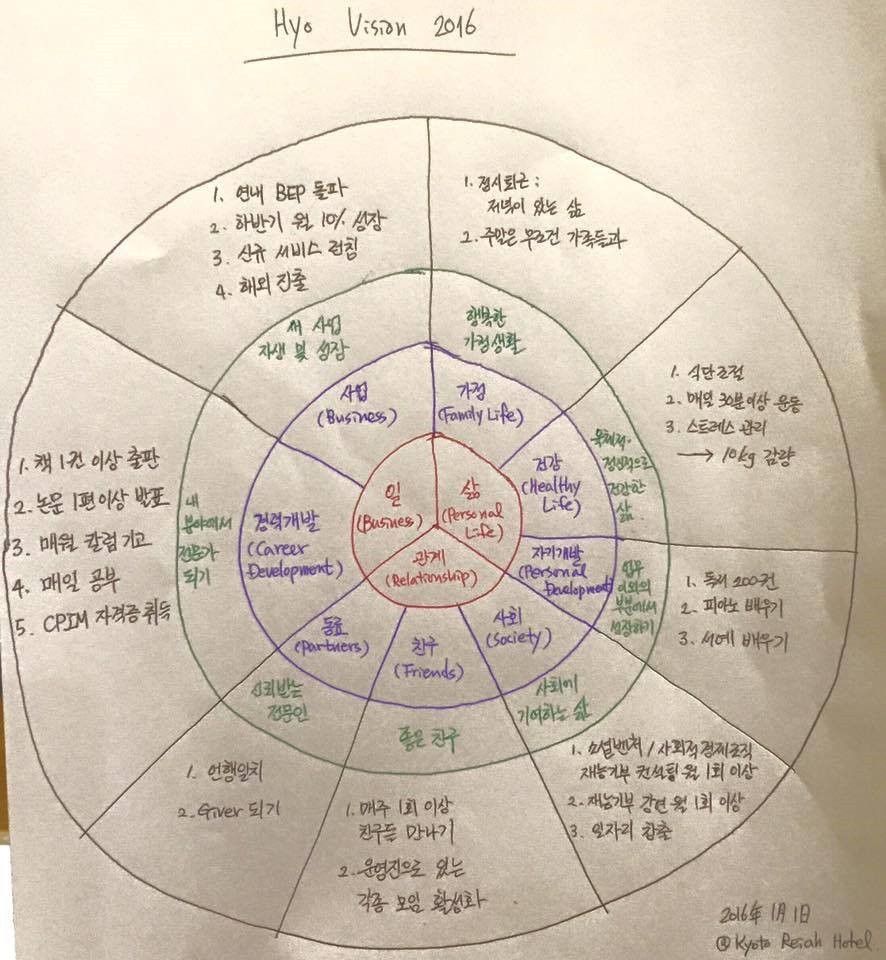 Hyo Vision 2016
1. 연내 BEP 돌파
2. 하반기 월 10% 성장
3. 신규 서비스 런칭
4. 해외 진출
1. 정시퇴근 :
저녁이 있는 삶
2. 주말은 무조건 가족들과
새 사업
자생 및 성장
행복한
가정생활
사업
(Business)
가정
(Family Life)
1. 식단조절
2. 매일 30분이상 운동
3. 스트레스 관리
→ 10kg 감량
육체적·
정신적으로
건강한
삶
건강
(Healthy
Life)
일
(Business)
삶
(Personal
Life)
관계
(Relationship)
1. 책 1권 이상 출판
2. 논문 1편이상 발표
3. 매월 칼럼 기고
4. 매일 공부
5. CPIM 자격증 취득
내
분야에서
전문가
되기
경력개발
(Career
Development)
자기개발
(Personal
Development)
업무
이외의
부분에서
성장하기
1. 독서 200권
2. 피아노 배우기
3. 서예 배우기
동료
(Partners)
친구
(Friends)
사회
(Society)
신뢰받는
전문인
좋은 친구
사회에
기여하는 삶
1. 언행일치
2. Giver 되기
1. 매주 1회 이상
친구들 만나기
2. 운영진으로 있는
각종 모임 활성화
1. 소셜벤처 / 사회적경제조직
재능기부 컨설팅 월 1회 이상
2. 재능기부 강연 월 1회 이상
3. 일자리 창출
2016年 1月 1日
@Kyoto Hotel